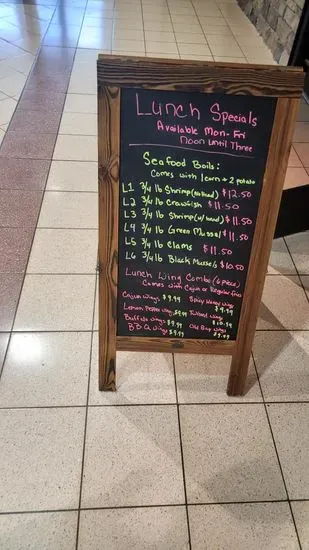 Lunch Specials
Available Mon-Fri
Noon Until Three
Seafood Boils:
Comes with 1 corn + 2 potato
L1 3/4 lb Shrimp (no head) $12.50
L2 3/4 lb Crawfish $11.50
L3 3/4 lb Shrimp (w/ head) $11.50
L4 3/4 lb Green Mussel $11.50
L5 3/4 lb Clams $11.50
L6 3/4 lb Black Mussels $10.50
Lunch Wing Combo (6 piece)
Comes with Cajun or Regular fries
Cajun Wings $9.99 Spicy Wings $9.99
Lemon Pepper Wings $9.99 Wings $10.99
Buffalo Wings $9.99 Old Bay Wings $9.99
B.B.Q Wings $9.99